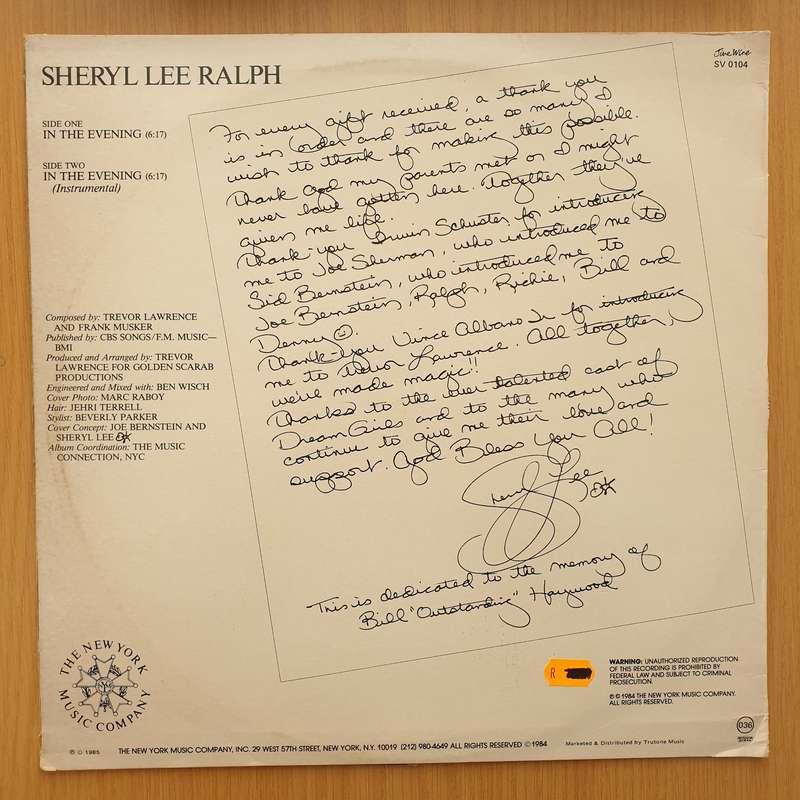 SHERYL LEE RALPH
SIDE ONE
IN THE EVENING (6:17)
SIDE TWO
IN THE EVENING (6:17)
(Instrumental)
Composed by: TREVOR LAWRENCE
AND FRANK MUSKER
Published by: CBS SONGS/F.M. MUSIC—
BMI
Produced and Arranged by: TREVOR
LAWRENCE FOR GOLDEN SCARAB
PRODUCTIONS
Engineered and Mixed with: BEN WISCH
Cover Photo: MARC RABOY
Hair: JEHRI TERRELL
Stylist: BEVERLY PARKER
Cover Concept: JOE BERNSTEIN AND
SHERYL LEE
Album Coordination: THE MUSIC
CONNECTION, NYC
Jive Wire
SV 0104
For every gift received, a thank you
is in order and there are so many I
wish to thank for making this possible.
Thank God my parents met or I might
never have gotten here. Together they've
given me life.
Thank-you Irwin Schuster for introducing
me to Joe Sherman, who introduced me to
Sid Bernstein, who introduced me to
Joe Bernstein, Ralph, Richie, Bill and
Denny
Thank-You Vince Albano Jr. for introducing
me to Trevor Lawrence. All together,
we've made magic!!
Thanks to the ever talented cast of
DreamGirls and to the many who
continue to give me their love and
support. God Bless You All!
Sheryl Lee
This is dedicated to the memory of
Bill "Outstanding" Haywood
THE NEW YORK
MUSIC COMPANY
R
WARNING: UNAUTHORIZED REPRODUCTION
OF THIS RECORDING IS PROHIBITED BY
FEDERAL LAW AND SUBJECT TO CRIMINAL
PROSECUTION.
℗ © 1984 THE NEW YORK MUSIC COMPANY.
ALL RIGHTS RESERVED.
036
℗ © 1985
THE NEW YORK MUSIC COMPANY, INC. 29 WEST 57TH STREET, NEW YORK, N.Y. 10019 (212) 980-4649 ALL RIGHTS RESERVED © 1984
Marketed & Distributed by Trutone Music